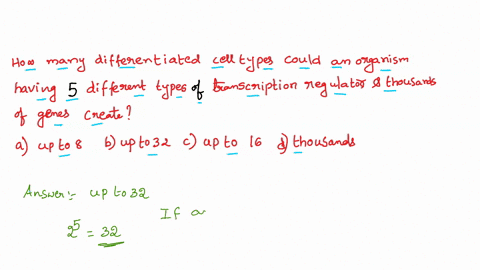 How many differentiated cell types could an organism
having 5 different types of transcription regulator & thousands
of genes create?
a) up to 8 b) up to 32 c) up to 16 d) thousands
Answer:- up to 32
If a
2⁵ = 32